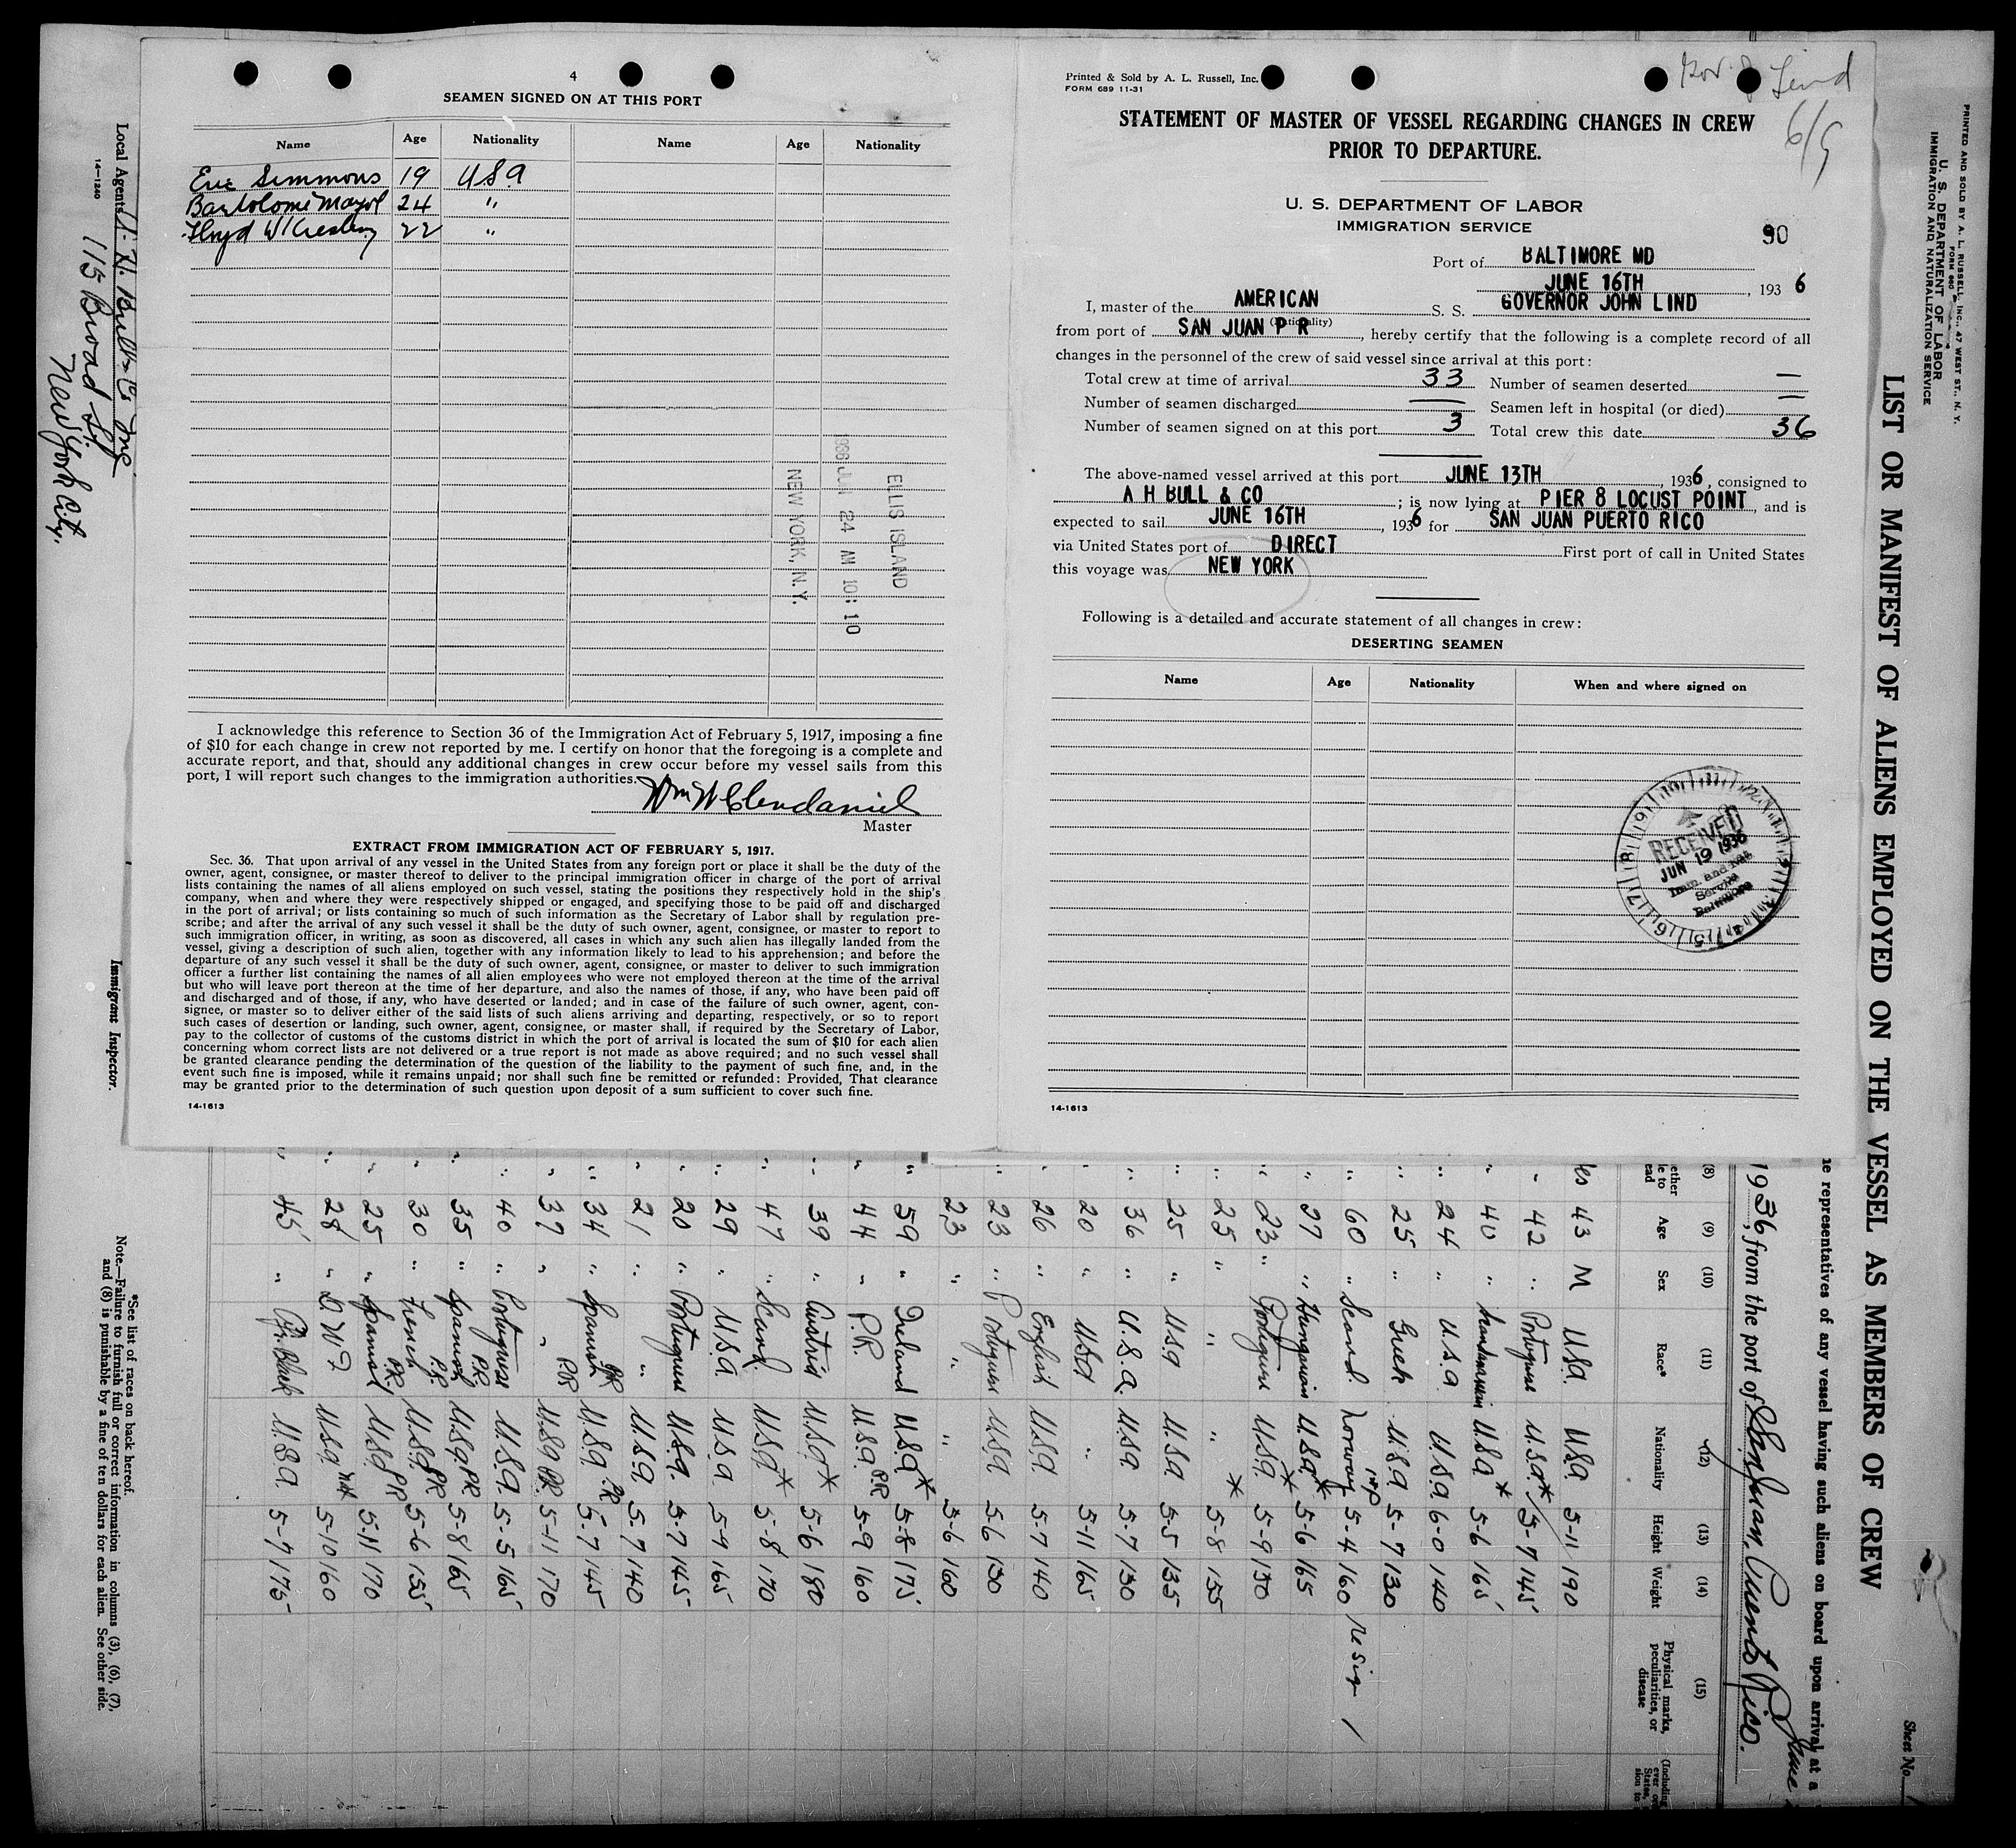 4
SEAMEN SIGNED ON AT THIS PORT
Name Age Nationality Name Age Nationality
Eric Simmons 19 USA
Bartolomi Mayol 24 "
22 "
ELLIS ISLAND
1936 JUN 24 AM 10:10
NEW YORK, N.Y.
I acknowledge this reference to Section 36 of the Immigration Act of February 5, 1917, imposing a fine
of $10 for each change in crew not reported by me. I certify on honor that the foregoing is a complete and
accurate report, and that, should any additional changes in crew occur before my vessel sails from this
port, I will report such changes to the immigration authorities.
Wm W Clendaniel
Master
EXTRACT FROM IMMIGRATION ACT OF FEBRUARY 5, 1917.
Sec. 36. That upon arrival of any vessel in the United States from any foreign port or place it shall be the duty of the
owner, agent, consignee, or master thereof to deliver to the principal immigration officer in charge of the port of arrival
lists containing the names of all aliens employed on such vessel, stating the positions they respectively hold in the ship's
company, when and where they were respectively shipped or engaged, and specifying those to be paid off and discharged
in the port of arrival; or lists containing so much of such information as the Secretary of Labor shall by regulation pre-
scribe; and after the arrival of any such vessel it shall be the duty of such owner, agent, consignee, or master to report to
such immigration officer, in writing, as soon as discovered, all cases in which any such alien has illegally landed from the
vessel, giving a description of such alien, together with any information likely to lead to his apprehension; and before the
departure of any such vessel it shall be the duty of such owner, agent, consignee, or master to deliver to such immigration
officer a further list containing the names of all alien employees who were not employed thereon at the time of the arrival
but who will leave port thereon at the time of her departure, and also the names of those, if any, who have been paid off
and discharged and of those, if any, who have deserted or landed; and in case of the failure of such owner, agent, con-
signee, or master so to deliver either of the said lists of such aliens arriving and departing, respectively, or so to report
such cases of desertion or landing, such owner, agent, consignee, or master shall, if required by the Secretary of Labor,
pay to the collector of customs of the customs district in which the port of arrival is located the sum of $10 for each alien
concerning whom correct lists are not delivered or a true report is not made as above required; and no such vessel shall
be granted clearance pending the determination of the question of the liability to the payment of such fine, and, in the
event such fine is imposed, while it remains unpaid; nor shall such fine be remitted or refunded: Provided, That clearance
may be granted prior to the determination of such question upon deposit of a sum sufficient to cover such fine.
14-1613
Printed & Sold by A. L. Russell, Inc.
FORM 689 11-31
Gov. J Lind
6/9
STATEMENT OF MASTER OF VESSEL REGARDING CHANGES IN CREW
PRIOR TO DEPARTURE.
U. S. DEPARTMENT OF LABOR
IMMIGRATION SERVICE
90
Port of BALTIMORE MD
JUNE 16TH, 1936
I, master of the AMERICAN S. S. GOVERNOR JOHN LIND
(Nationality)
from port of SAN JUAN P R, hereby certify that the following is a complete record of all
changes in the personnel of the crew of said vessel since arrival at this port:
Total crew at time of arrival 33 Number of seamen deserted —
Number of seamen discharged — Seamen left in hospital (or died) —
Number of seamen signed on at this port 3 Total crew this date 36
The above-named vessel arrived at this port JUNE 13TH, 1936, consigned to
A H BULL & CO; is now lying at PIER 8 LOCUST POINT, and is
expected to sail JUNE 16TH, 1936 for SAN JUAN PUERTO RICO
via United States port of DIRECT First port of call in United States
this voyage was NEW YORK
Following is a detailed and accurate statement of all changes in crew:
DESERTING SEAMEN
Name Age Nationality When and where signed on
RECEIVED
JUN 19 1936
Imm. and Nat.
Service
Baltimore
14-1613
PRINTED AND SOLD BY A. L. RUSSELL, INC., 47 WEST ST., N. Y.
FORM 680
U. S. DEPARTMENT OF LABOR
IMMIGRATION AND NATURALIZATION SERVICE
Sheet No.
LIST OR MANIFEST OF ALIENS EMPLOYED ON THE VESSEL AS MEMBERS OF CREW
he representatives of any vessel having such aliens on board upon arrival at a
1936, from the port of San Juan, Puerto Rico. June
(8) (9) (10) (11) (12) (13) (14) (15)
ether
le to
ead
Age Sex Race* Nationality Height Weight Physical marks, peculiarities, or disease
43 M USA USA 5-11 190
" 42 " Portuguese USA* 5-7 145
" 40 " Scandinavian USA* 5-6 165
" 24 " U.S.A USA 6-0 140
" 25 " Greek USA 5-7 130
" 60 " Scand. Norway 5-4 160
" 37 " Hungarian USA* 5-6 165
" 23 " Portuguese USA* 5-9 130
" 25 " " " * 5-8 155
" 25 " USA USA 5-5 135
" 36 " U.S.A. USA 5-7 130
" 20 " USA " 5-11 165
" 26 " English USA 5-7 140
" 23 " Portuguese USA 5-6 130
23 " " " 5-6 160
" 59 " Ireland USA* 5-8 175
" 44 " P.R. USA PR 5-9 160
" 39 " Austria USA* 5-6 180
" 47 " Scand. USA* 5-8 170
" 29 " USA USA 5-9 165
" 20 " Portuguese USA 5-7 145
" 21 " " USA 5-7 140
" 34 " Spanish PR USA PR 5-7 145
" 37 " " PR USA PR 5-11 170
" 40 " Portuguese USA 5-5 165
" 35 " Spanish PR USA PR 5-8 165
" 30 " French PR USA PR 5-6 155
" 25 " Spanish PR USA PR 5-11 170
" 28 " D W I USA nat 5-10 160
" 45 " Afr. Black USA 5-7 175
Local Agents A. H. Bull & Co Inc
115 Broad St.
New York City.
14-1240
Immigrant Inspector.
*See list of races on back hereof.
Note.—Failure to furnish full or correct information in columns (3), (6), (7),
and (8) is punishable by a fine of ten dollars for each alien. See other side.